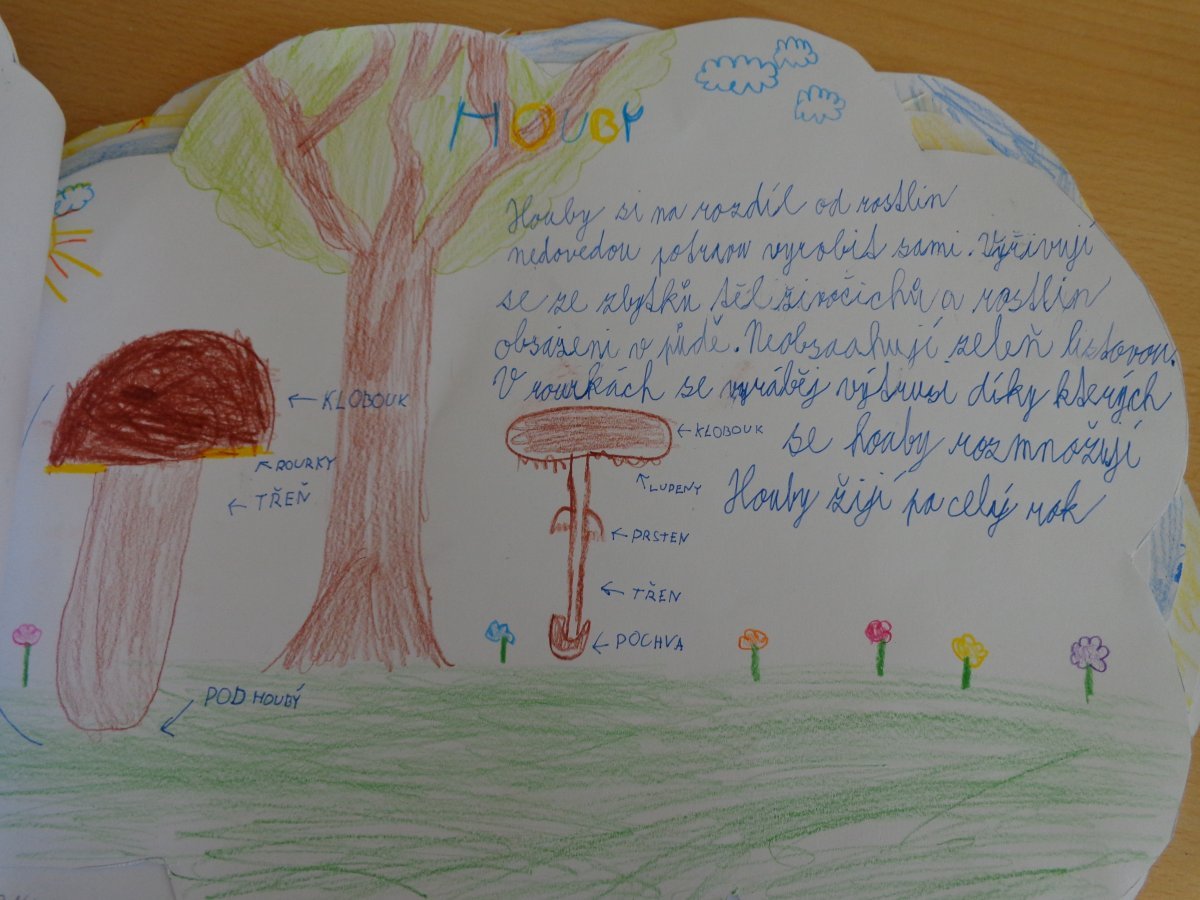 HOUBY
Houby si na rozdíl od rostlin
nedovedou potravu vyrobit sami. Vyživují
se ze zbytků těl živočichů a rostlin
obsázeni v půdě. Neobsaahují zeleň listovou.
V rourkách se vyráběj výtrusi díky kterých
se houby rozmnožují
Houby žijí po celý rok
← KLOBOUK
← ROURKY
← TŘEŇ
POD HOUBÝ
← KLOBOUK
LUPENY
← PRSTEN
← TŘEN
← POCHVA